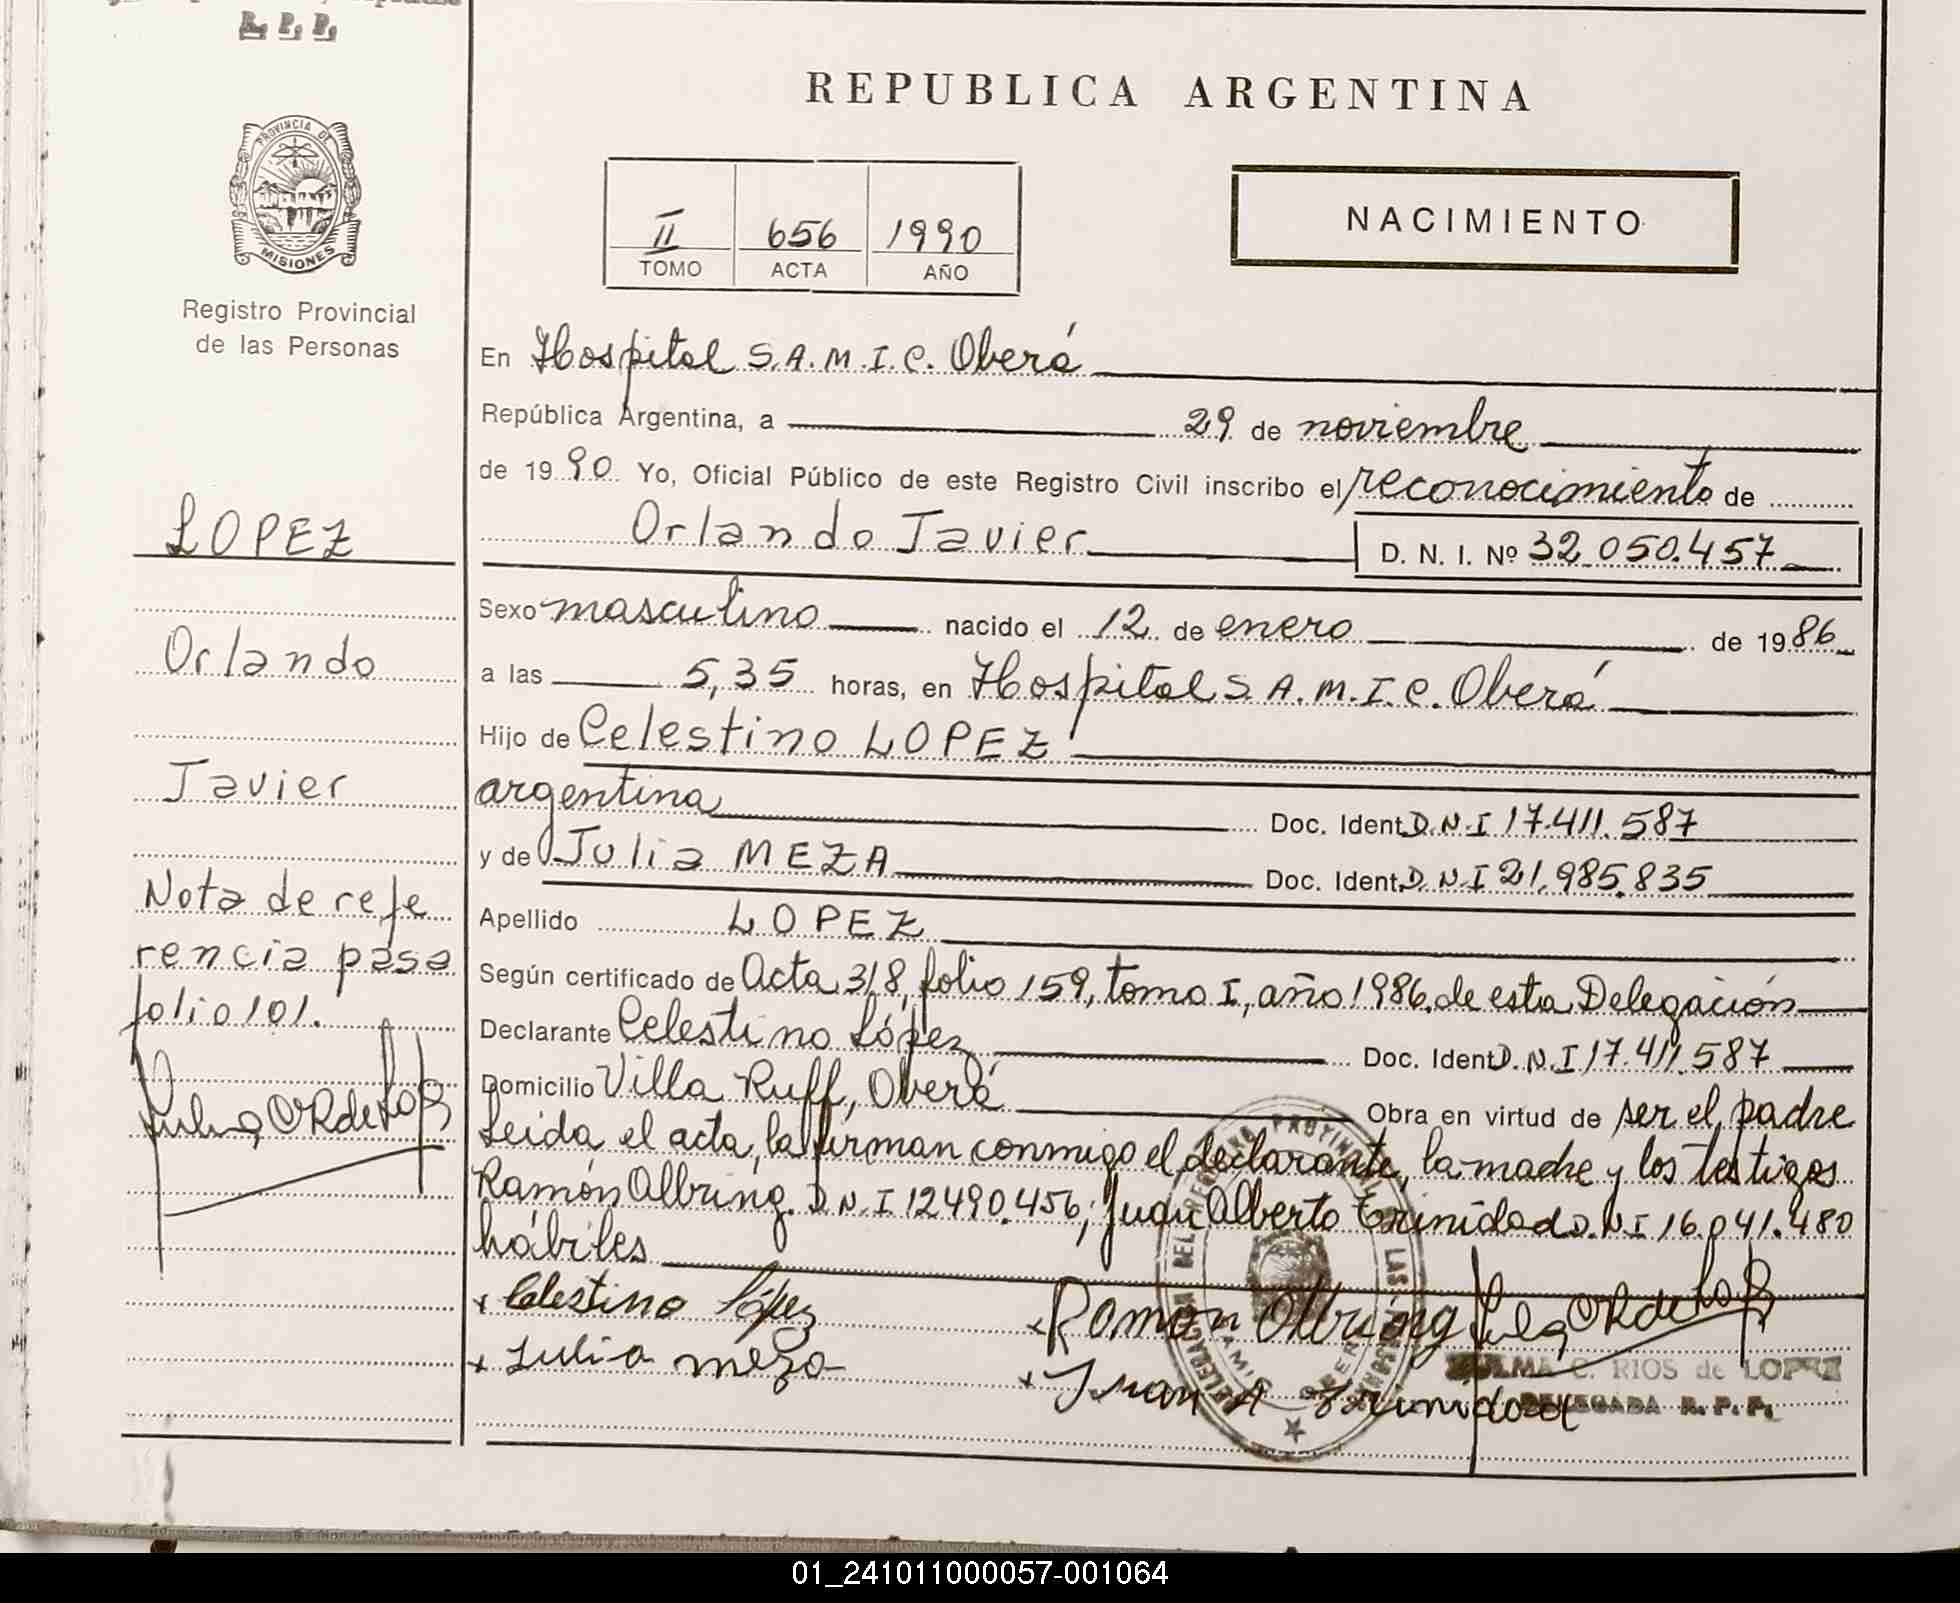 R. P. P.
PROVINCIA DE
MISIONES
Registro Provincial
de las Personas
LOPEZ
Orlando
Javier
Nota de refe
rencia pasa
folio 101.
REPUBLICA ARGENTINA
II 656 1990
TOMO ACTA AÑO
NACIMIENTO
En Hospital S.A.M.I.C. Oberá
República Argentina, a 29 de noviembre
de 1990 Yo, Oficial Público de este Registro Civil inscribo el reconocimiento de
Orlando Javier D. N. I. Nº 32.050.457
Sexo masculino nacido el 12 de enero de 1986
a las 5,35 horas, en Hospital S.A.M.I.C. Oberá
Hijo de Celestino LOPEZ
argentina Doc. Ident. D.N.I 17.411.587
y de Julia MEZA Doc. Ident. D.N.I 21.985.835
Apellido LOPEZ
Según certificado de Acta 318, folio 159, tomo I, año 1986, de esta Delegación
Declarante Celestino López Doc. Ident. D.N.I 17.411.587
Domicilio Villa Ruff, Oberá Obra en virtud de ser el padre
Leida el acta, la firman conmigo el declarante, la madre y los testigos
Ramón Olbring. D.N.I 12490.456; Juan Alberto Trinidad D.N.I 16.041.480
hábiles
x Celestino López x Ramón Olbring
x Julia meza x Juan A Trinidad
C. RIOS de LOPEZ
DELEGADA R. P. P.
01_241011000057-001064